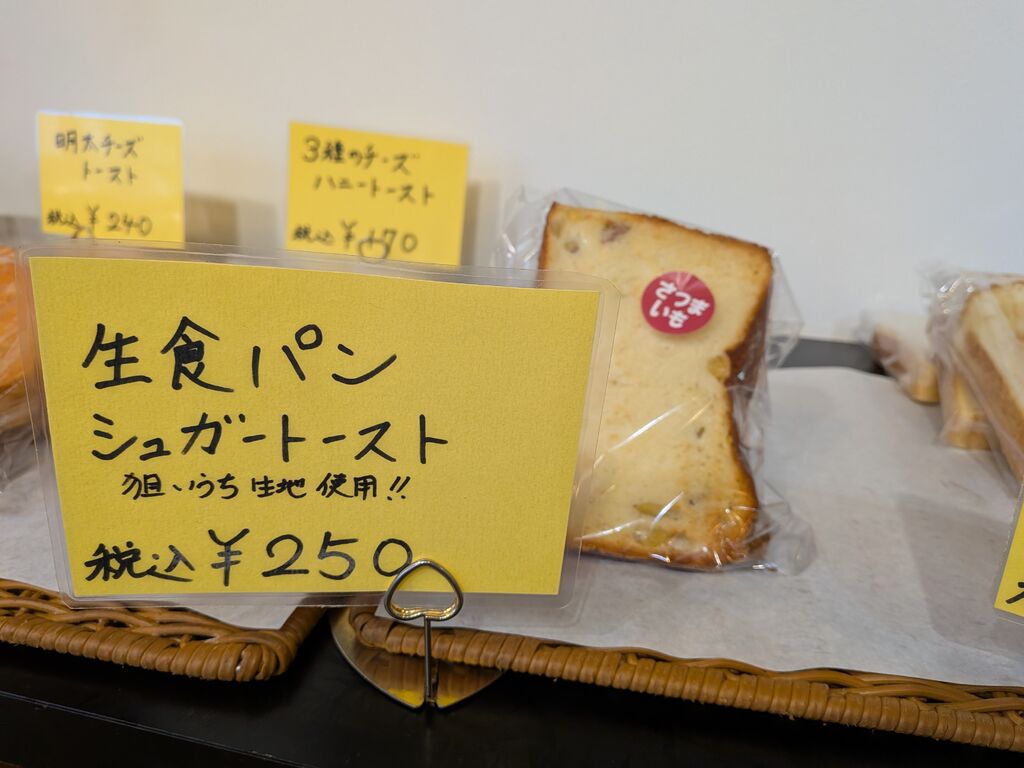 明太チーズ
トースト
税込¥240
3種のチーズ
ハニートースト
税込¥170
さつま
いも
生食パン
シュガートースト
狙いうち生地使用!!
税込¥250